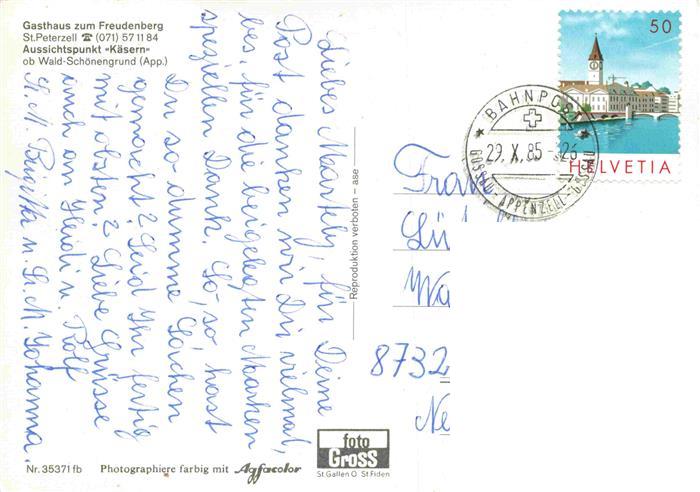 Gasthaus zum Freudenberg
St.Peterzell ☎ (071) 57 11 84
Aussichtspunkt «Käsern»
ob Wald-Schönengrund (App.)
Liebes Maartely, für Deine
Post danken wir Dir vielmal,
bes. für die beigelegten Marken
speziellen Dank. So, so, hast
Du so dumme Sachen
gemacht? Seid Ihr fertig
mit obsten? Liebe Grüsse
auch an Heidi u. Rolf
Sr. M. Brigitta u. Sr. M. Johanna.
Reproduktion verboten – ase
50
HELVETIA
★ BAHNPOST
29. X. 85 - 26
GOSSAU-APPENZELL-
Frau
Lü
Wa
8732
Ne
foto
Gross
St.Gallen O St.Fiden
Nr. 35371 fb
Photographiere farbig mit Agfacolor